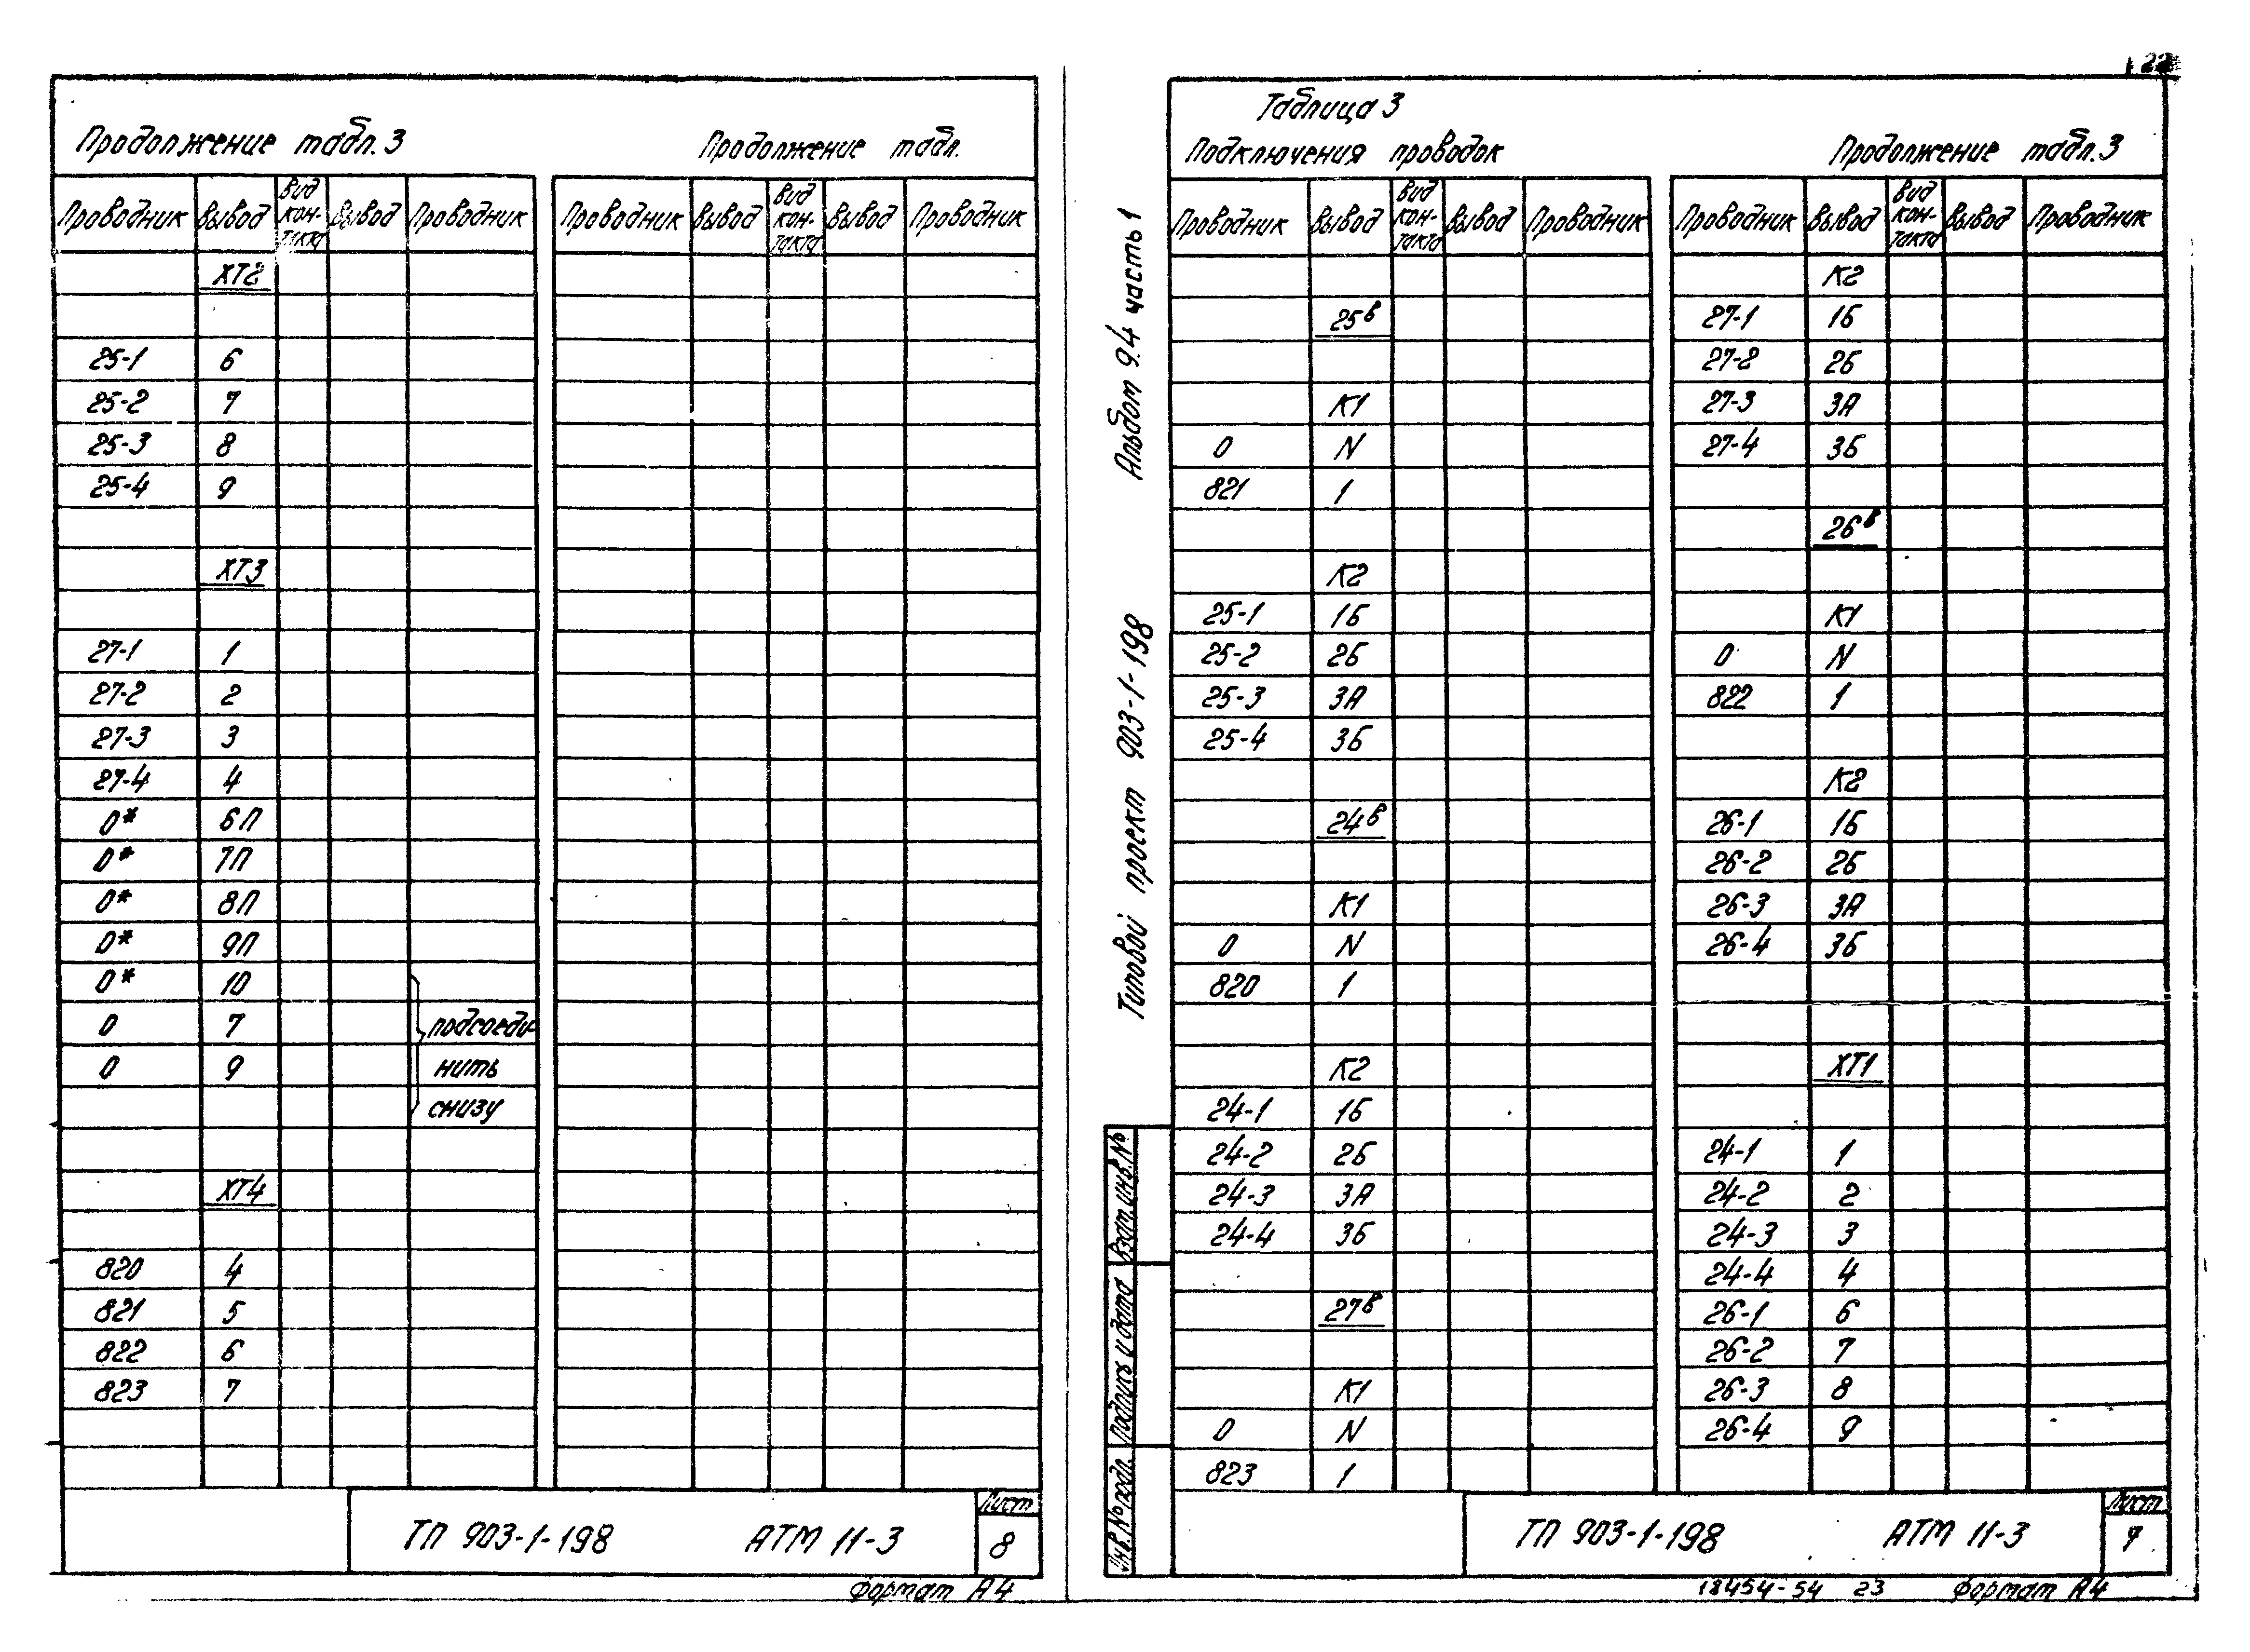 Продолжение табл. 3
Проводник Вывод Вид кон-такта Вывод Проводник
ХТ2
25-1 6
25-2 7
25-3 8
25-4 9
ХТ3
27-1 1
27-2 2
27-3 3
27-4 4
0* 6П
0* 7П
0* 8П
0* 9П
0* 10
0 7 подсоеди-
0 9 нить
снизу
ХТ4
820 4
821 5
822 6
823 7
Продолжение табл.
Проводник Вывод Вид кон-такта Вывод Проводник
ТП 903-1-198 АТМ 11-3
Лист
8
Формат А4
22
Альбом 9.4 часть 1
Типовой проект 903-1-198
Взам. инв. №
Подпись и дата
Инв. № подл.
Таблица 3
Подключения проводок
Проводник Вывод Вид кон-такта Вывод Проводник
25в
К1
0 N
821 1
К2
25-1 1Б
25-2 2Б
25-3 3А
25-4 3Б
24в
К1
0 N
820 1
К2
24-1 1Б
24-2 2Б
24-3 3А
24-4 3Б
27в
К1
0 N
823 1
Продолжение табл. 3
Проводник Вывод Вид кон-такта Вывод Проводник
К2
27-1 1Б
27-2 2Б
27-3 3А
27-4 3Б
26в
К1
0 N
822 1
К2
26-1 1Б
26-2 2Б
26-3 3А
26-4 3Б
ХТ1
24-1 1
24-2 2
24-3 3
24-4 4
26-1 6
26-2 7
26-3 8
26-4 9
ТП 903-1-198 АТМ 11-3
Лист
7
18454-54 23 Формат А4